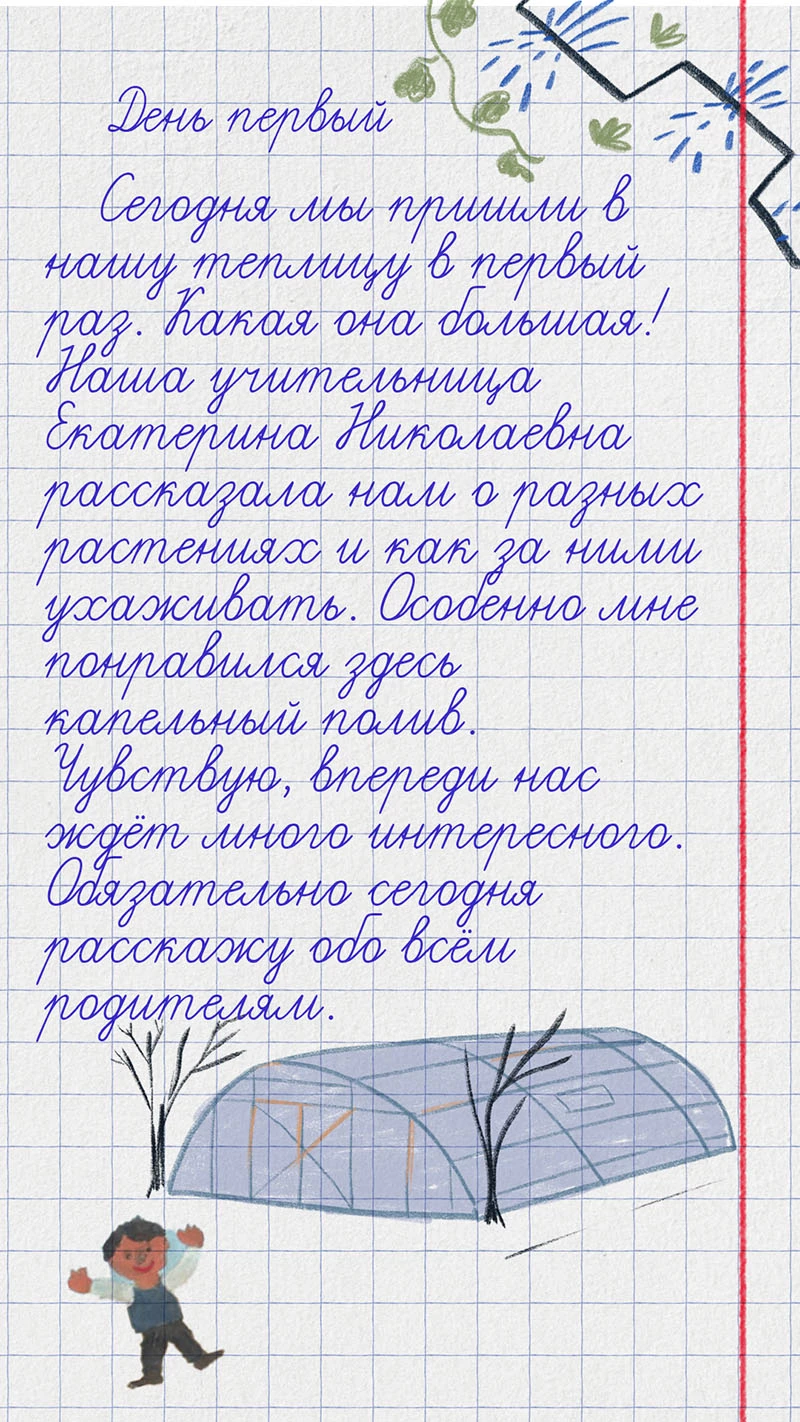 День первый
Сегодня мы пришли в
нашу теплицу в первый
раз. Какая она большая!
Наша учительница
Екатерина Николаевна
рассказала нам о разных
растениях и как за ними
ухаживать. Особенно мне
понравился здесь
капельный полив.
Чувствую, впереди нас
ждёт много интересного.
Обязательно сегодня
расскажу обо всём
родителям.